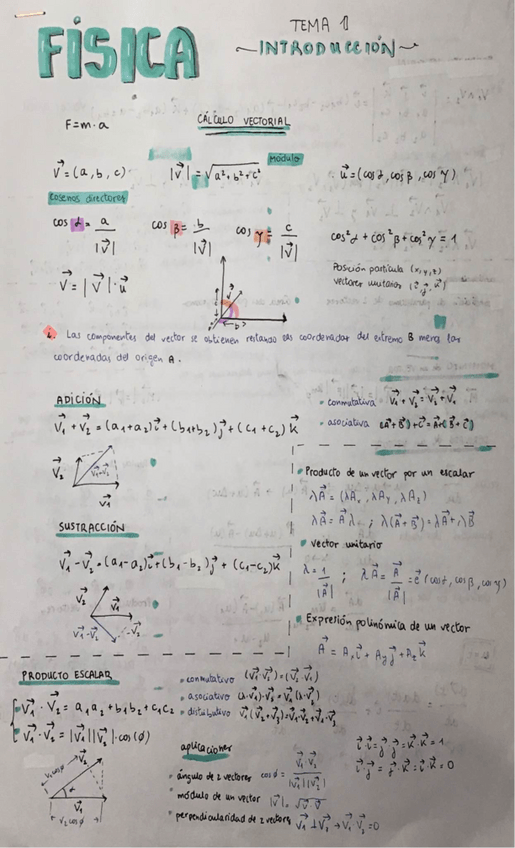 FÍSICA
TEMA 1
~INTRODUCCIÓN~
F=m·a
CÁLCULO VECTORIAL
V⃗=(a,b,c)
|V⃗|=√a²+b²+c²
Módulo
u⃗=(cosα,cosβ,cosγ)
cosenos directores
cos α = a/|V⃗|
cos β = b/|V⃗|
cos γ = c/|V⃗|
cos²α+cos²β+cos²γ=1
V⃗=|V⃗|·u⃗
Posición partícula (x,y,z)
vectores unitarios
Las componentes del vector se obtienen restando las coordenadas del extremo B menos las
coordenadas del origen A.
ADICIÓN
V⃗1+V⃗2=(a1+a2)i⃗+(b1+b2)j⃗+(c1+c2)k⃗
V⃗2
V⃗1
• conmutativa V⃗1+V⃗2=V⃗2+V⃗1
• asociativa (A⃗+B⃗)+C⃗=A⃗+(B⃗+C⃗)
SUSTRACCIÓN
V⃗1-V⃗2=(a1-a2)i⃗+(b1-b2)j⃗+(c1-c2)k⃗
V⃗2
V⃗1
-V⃗2
V⃗1-V⃗2
• Producto de un vector por un escalar
λA⃗=(λAx, λAy, λAz)
λA⃗=A⃗λ ; λ(A⃗+B⃗)=λA⃗+λB⃗
• vector unitario
λ=1/|A⃗| ; λA⃗=A⃗/|A⃗|=e⃗ (cosα, cosβ, cosγ)
• Expresión polinómica de un vector
A⃗=Axi⃗+Ayj⃗+Azk⃗
PRODUCTO ESCALAR
V⃗1·V⃗2=a1a2+b1b2+c1c2
V⃗1·V⃗2=|V⃗1||V⃗2|·cos(ϕ)
V⃗2
α
V⃗1
V2cosϕ
• conmutativo (V⃗1·V⃗2)=(V⃗2·V⃗1)
• asociativo
• distributivo V⃗1(V⃗2+V⃗3)=V⃗1V⃗2+V⃗1·V⃗3
aplicaciones
• ángulo de 2 vectores cosϕ=V⃗1·V⃗2/|V⃗1||V⃗2|
• módulo de un vector |V⃗|=√V⃗·V⃗
• perpendicularidad de 2 vectores V⃗1⊥V⃗2→V⃗1·V⃗2=0
i⃗·i⃗=j⃗·j⃗=k⃗·k⃗=1
i⃗·j⃗=j⃗·k⃗=i⃗·k⃗=0